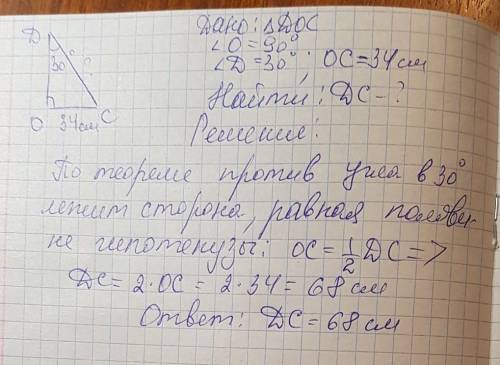 Дано: △DOC
∠O = 90°
∠D = 30°; OC = 34 см
Найти: DC - ?
Решение:
D
30°
?
O 34 см C
По теореме против угла в 30°
лежит сторона, равная полови-
не гипотенузы: OC = 1/2 DC =>
DC = 2·OC = 2·34 = 68 см
Ответ: DC = 68 см